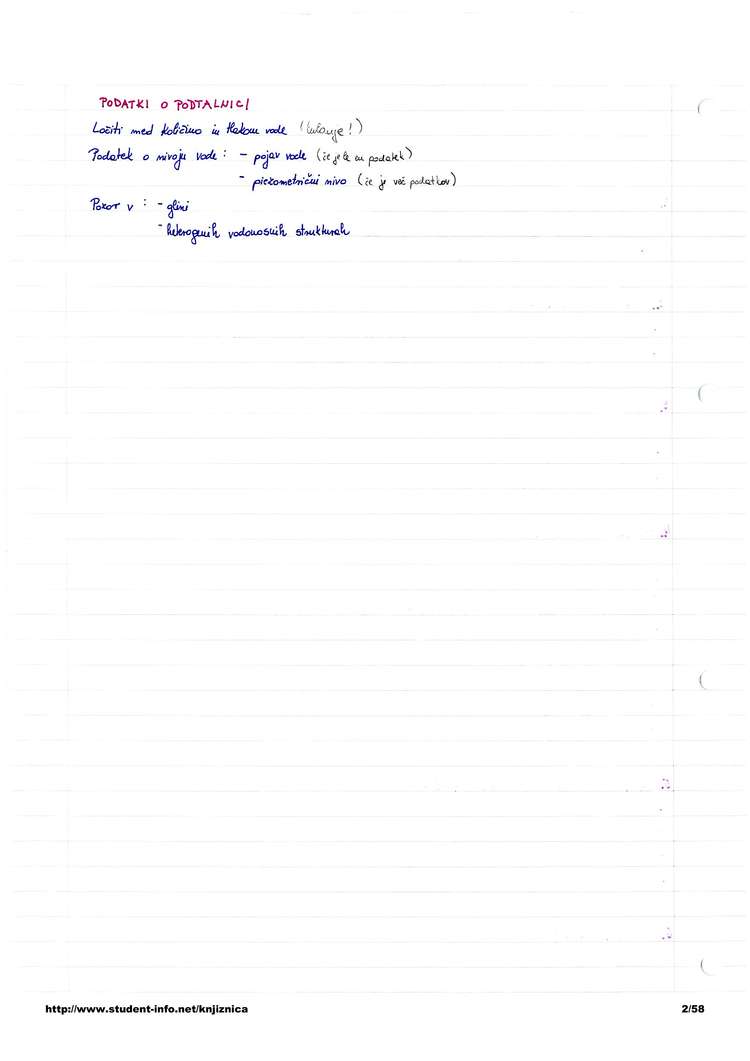 PODATKI O PODTALNICI
Ločiti med količino in tlakom vode
Podatek o nivoju vode : - pojav vode (če je le en podatek)
- piezometrični nivo (če je več podatkov)
Pozor v : - glini
- heterogenih vodonosnih strukturah
http://www.student-info.net/knjiznica
2/58